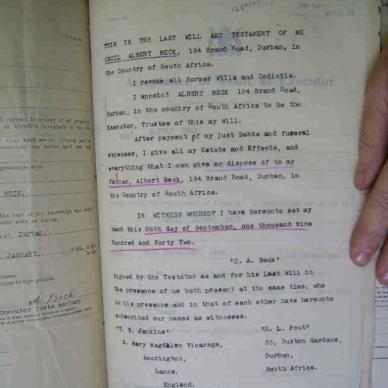 THIS IS THE LAST WILL AND TESTAMENT OF ME
CECIL ALBERT BECK, 194 Brand Road, Durban, in
the Country of South Africa.
I revoke all former Wills and Codicils.
I appoint ALBERT BECK, 194 Brand Road,
Durban, in the country of South Africa to be the
Executor, Trustee of this my Will.
After payment of my just Debts and funeral
expenses, I give all my Estate and Effects, and
everything that I can give or dispose of to my
Father, Albert Beck, 194 Brand Road, Durban, in
the Country of South Africa.
IN WITNESS WHEREOF I have hereunto set my
hand this day of September, one thousand Nine
Hundred and Forty Two.
"C. A. Beck"
Signed by the Testator as and for his Last Will in
the presence of us both present at the same time, who
in his presence and in that of each other have hereunto
subscribed our names as witnesses.
"T. B. Jenkins" "R. L. Pout"
St. Mary Magdalen Vicarage, 55, Buxton Gardens,
Accrington, Durban,
Lancs, South Africa.
England.
BECK.
Durban.
JANUARY,
A. Beck
Executor Testamentary